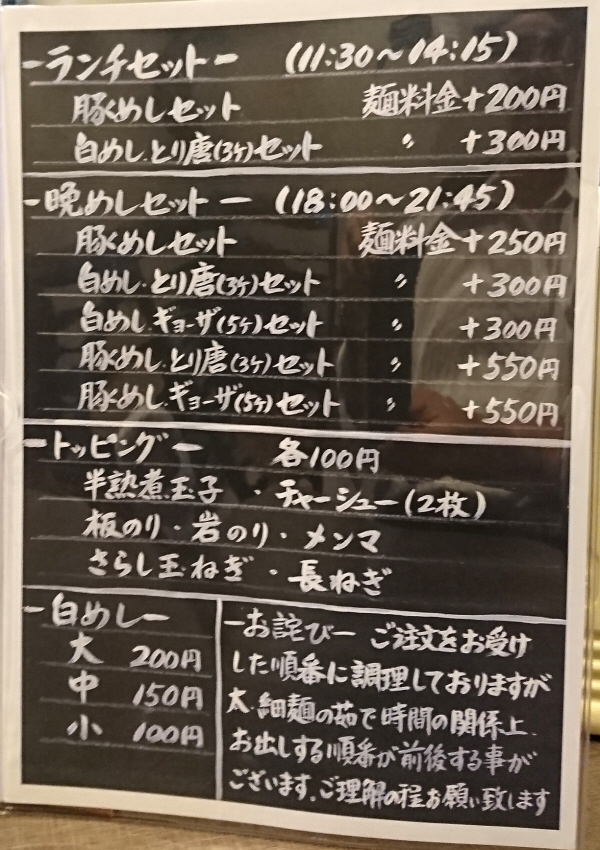 ーランチセットー (11:30〜14:15)
豚めしセット 麺料金+200円
白めし・とり唐(3ケ)セット 〃 +300円
ー晩めしセットー (18:00〜21:45)
豚めしセット 麺料金+250円
白めし・とり唐(3ケ)セット 〃 +300円
白めし・ギョーザ(5ケ)セット 〃 +300円
豚めし・とり唐(3ケ)セット 〃 +550円
豚めし・ギョーザ(5ケ)セット 〃 +550円
ートッピングー 各100円
半熟煮玉子 ・ チャーシュー(2枚)
板のり・岩のり・メンマ
さらし玉ねぎ ・ 長ねぎ
ー白めしー
大 200円
中 150円
小 100円
ーお詫びー ご注文をお受け
した順番に調理しておりますが
太、細麺の茹で時間の関係上、
お出しする順番が前後する事が
ございます。ご理解の程お願い致します